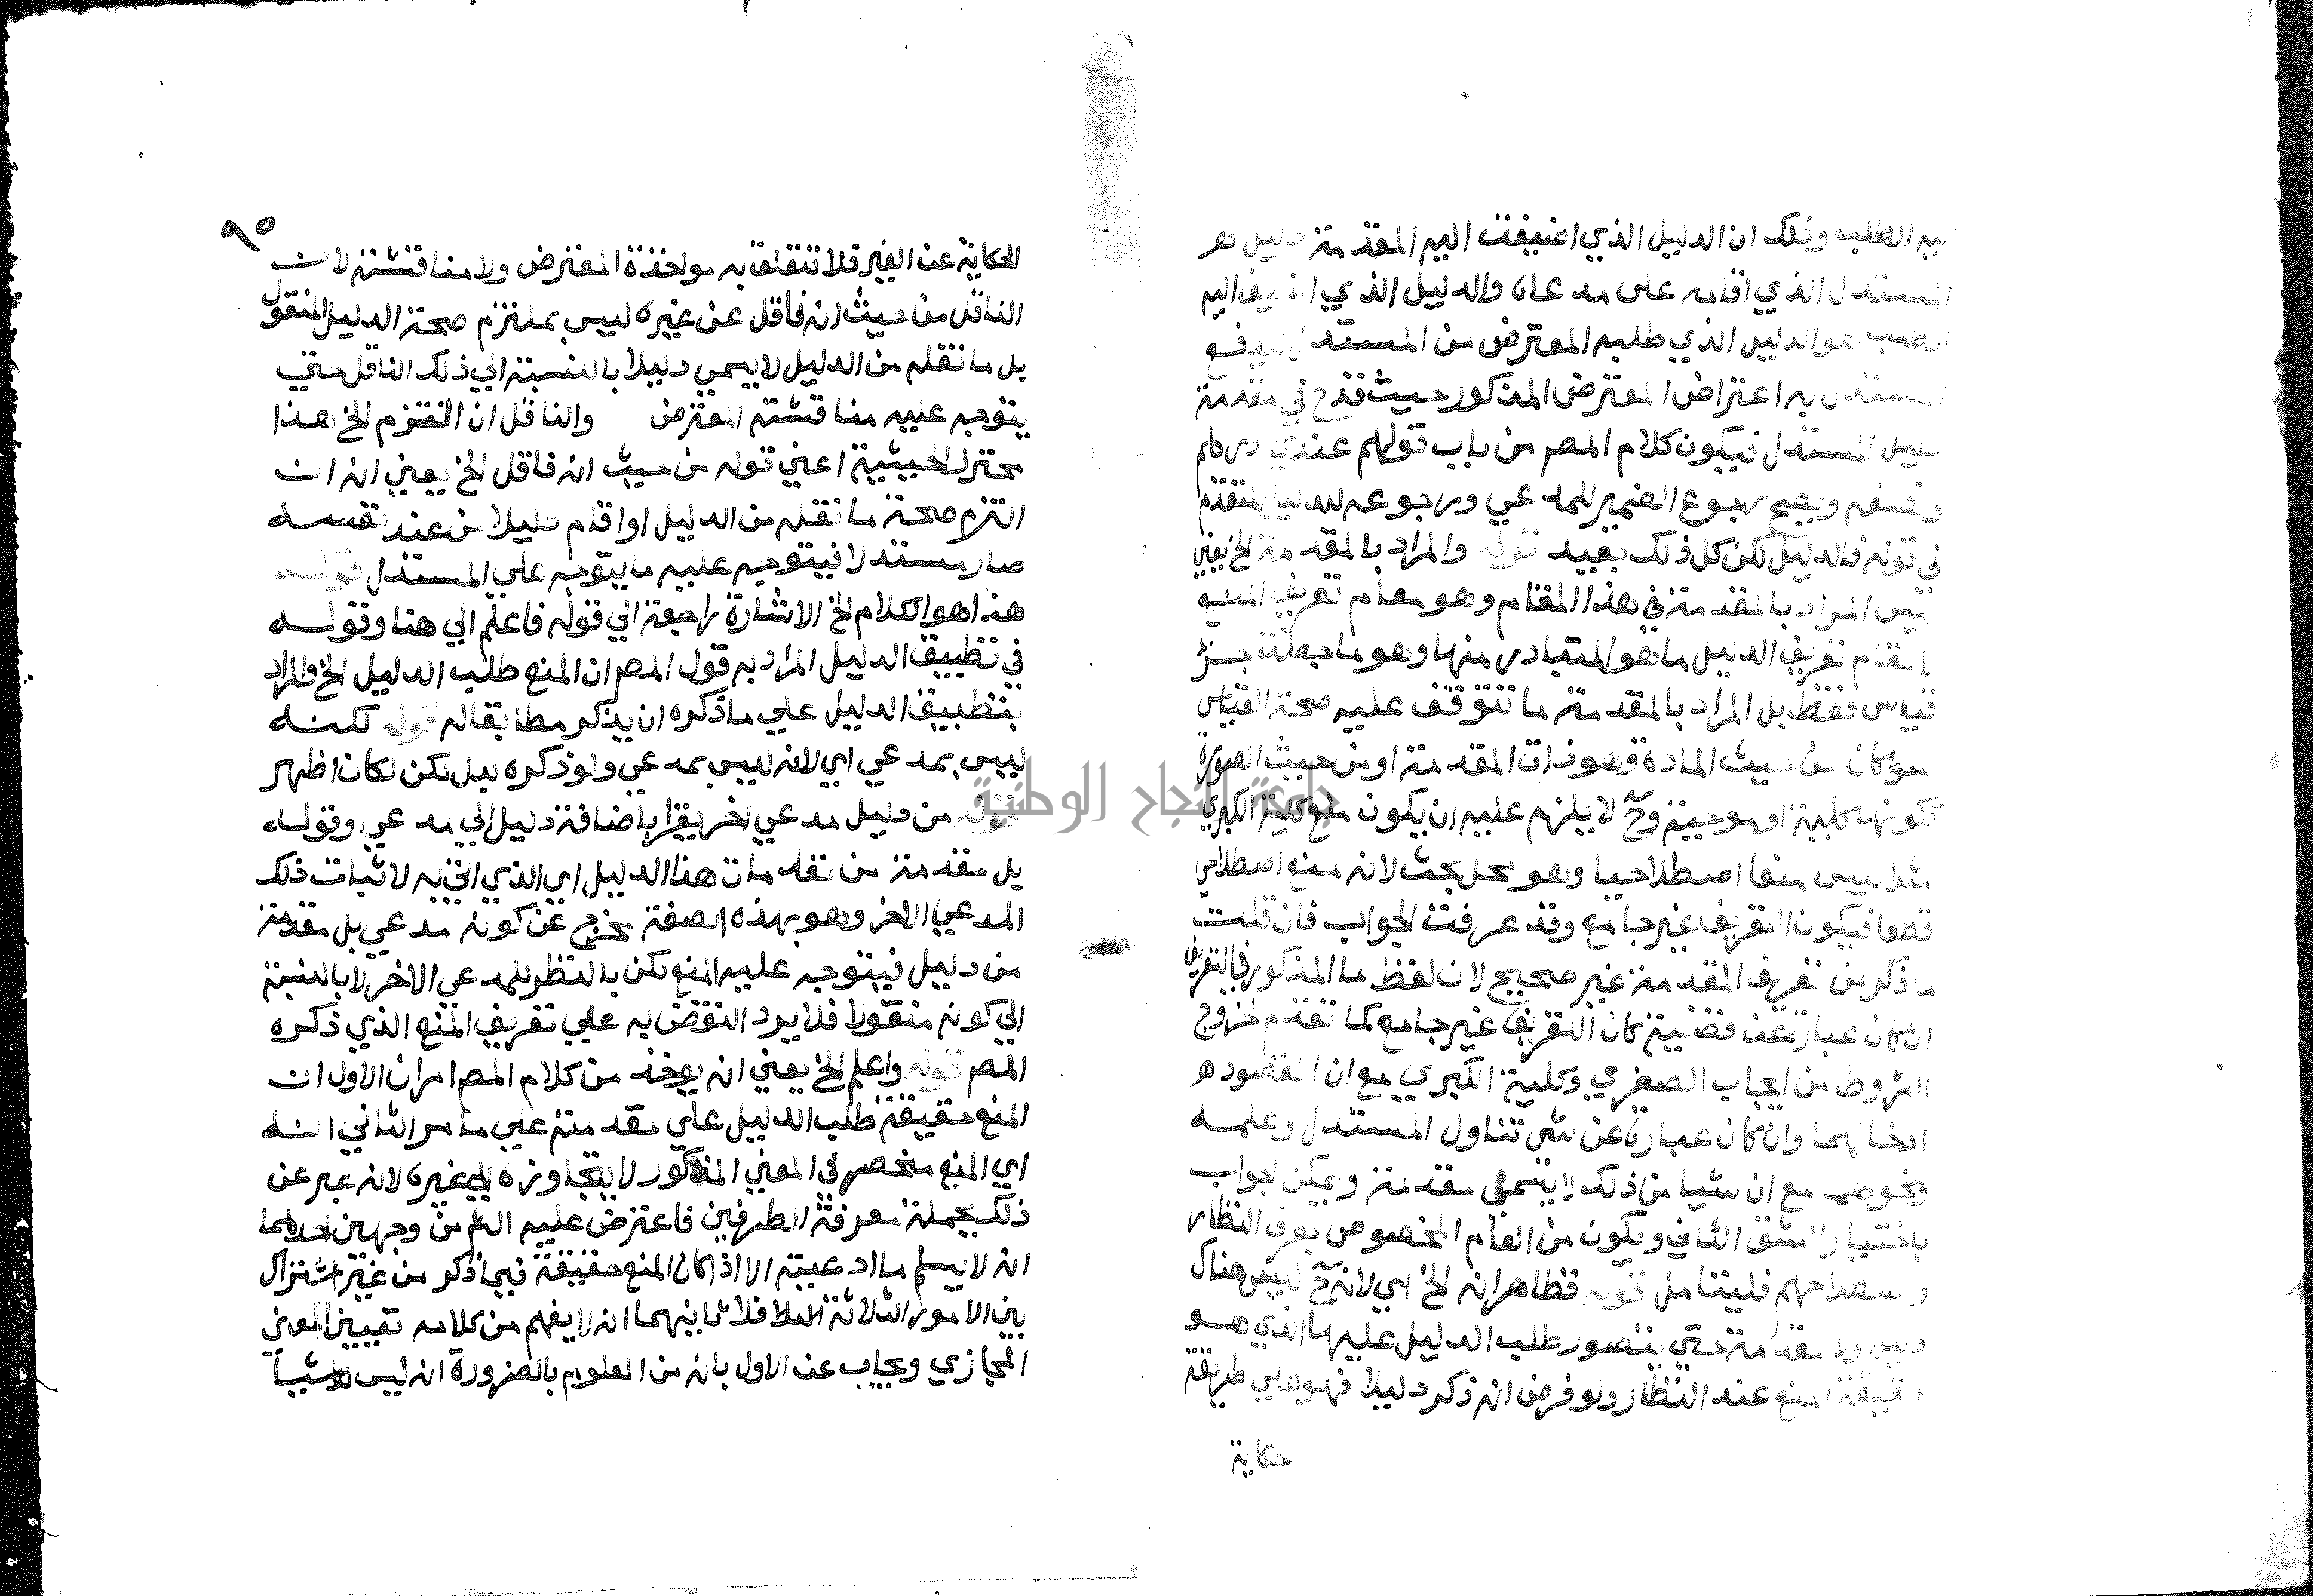 اليه الطلب وذلك ان الدليل الذي اضيفت اليه المقدمة دليل هو
المستدل الذي اقامه على مدعاه والدليل الذي اضيف اليه
الطلب هو الدليل الذي طلبه المعترض من المستدل ليدفع
المستدل به اعتراض المعترض المذكور حيث قدح في مقدمة
دليل المستدل فيكون كلام المصر من باب قولهم عندي درهم
ونصفه ويصح رجوع الضمير للمدعي ورجوعه للدليل المتقدم
في قوله فالدليل لكن كل ذلك بعيد قوله والمراد بالمقدمة الخ يعني
ليس المراد بالمقدمة في هذا المقام وهو مقام تعريف المنع
لا مقام تعريف الدليل ما هو المتبادر منها وهو ما جعلت جزؤ
قياس فقط بل المراد بالمقدمة ما تتوقف عليه صحة القياس
سواكان من حيث المادة وهو ذات المقدمة او من حيث الصورة
ككونها كلية او موجبة وح لا يلزم عليه ان يكون منع كلية الكبري
مثلا ليس منعا اصطلاحيا وهو محل بحث لانه منع اصطلاحي
قطعا فيكون التعريف غير جامع وقد عرفت الجواب فان قلت
ما ذكر من تعريف المقدمة غير صحيح لان لفظ ما المذكور في التعريف
ان كان عبارة عن قضية كان التعريف غير جامع كما تقدم لخروج
الشروط من ايجاب الصغري وكلية الكبري مع ان المقصود
ادخالهما وان كان عبارة عن شي تناول المستدل وعلمه
ونحوهما مع ان شيا من ذلك لا يسمي مقدمة ويمكن الجواب
باختيار الشق الثاني ويكون من العام المخصوص بعرف النظار
واصطلاحهم فليتامل قوله فظاهر انه الخ اي لانه ح ليس هناك
دليل ولا مقدمة حتي يتصور طلب الدليل عليها الذي هو
حقيقة المنع عند النظار ولو فرض انه ذكر دليلا فهو علي طريقة
حكاية
٩٥
الحكاية عن الغير فلا تتعلق به مواخذة المعترض ولا مناقشته لان
الناقل من حيث انه ناقل عن غيره ليس بملتزم صحة الدليل المنقول
بل ما نقله من الدليل لا يسمي دليلا بالنسبة الي ذلك الناقل حتي
يتوجه عليه مناقشة المعترض والناقل ان التزم الخ هذا
محترز الحيثية اعني قوله من حيث انه ناقل الخ يعني انه ان
التزم صحة ما نقله من الدليل او اقام دليلا من عند نفسه
صار مستدلا فيتوجه عليه ما يتوجه علي المستدل قوله
هذا هو الكلام الخ الاشارة راجعة الي قوله فاعلم الي هنا وقوله
في تطبيق الدليل المراد به قول المصر ان المنع طلب الدليل الخ والمراد
بتطبيق الدليل علي ما ذكره ان يذكر مطابقا له قوله لكنه
ليس بمدعي اي لانه ليس بمدعي ولو ذكره بدل لكن لكان اظهر
قوله من دليل مدعي اخر يقرا باضافة دليل الي مدعي وقوله
بل مقدمة من مقدمات هذا الدليل اي الذي اتي به لاثبات ذلك
المدعي الاخر وهو بهذه الصفة يخرج عن كونه مدعي بل مقدمة
من دليل فيتوجه عليه المنع لكن بالنظر للمدعي الاخر لا بالنسبة
الي كونه منقولا فلا يرد النقض به علي تعريف المنع الذي ذكره
المصر قوله واعلم الخ يعني انه يوخذ من كلام المصر امران الاول ان
المنع حقيقة طلب الدليل علي مقدمته علي ما مر الثاني انه
اي المنع منحصر في المعني المذكور لا يتجاوزه الي غيره لانه عبر عن
ذلك بجملة معرفة الطرفين فاعترض عليه الش من وجهين احدهما
انه لا يسلم ما ادعيته الا اذا كان المنع حقيقة فيما ذكر من غير اشتراك
بين الامور الثلاثة والا فلا ثانيهما انه لا يفهم من كلامه تعيين المعني
المجازي ويجاب عن الاول بان من المعلوم بالضرورة انه ليس لنا شيا